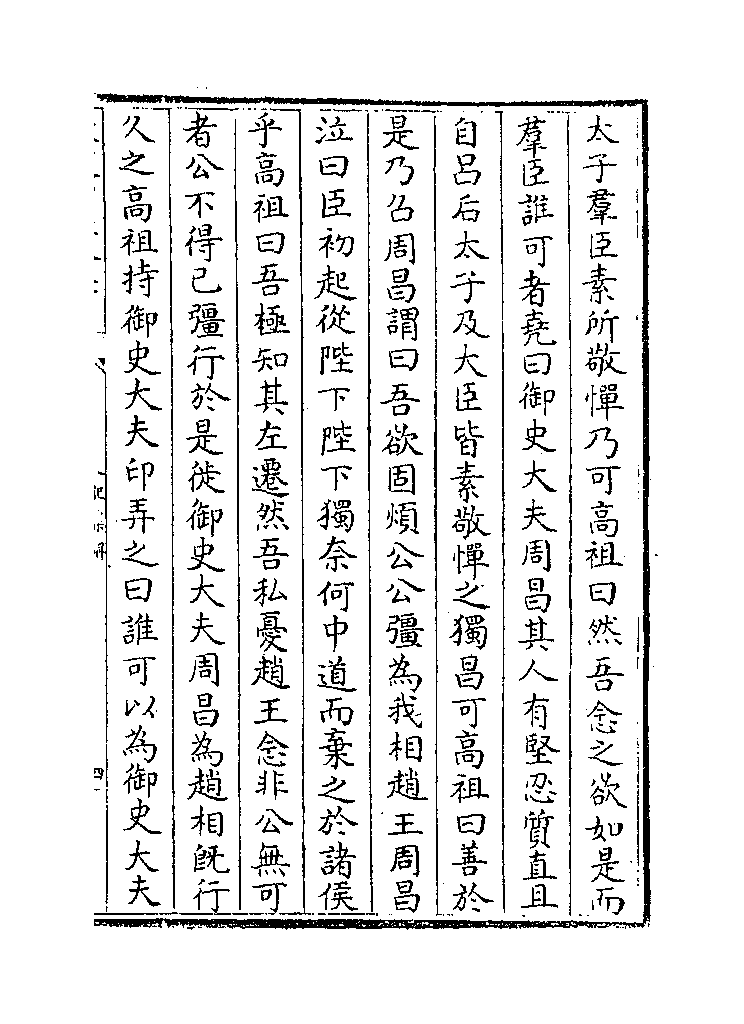 太子羣臣素所敬憚乃可高祖曰然吾念之欲如是而
羣臣誰可者堯曰御史大夫周昌其人有堅忍質直且
自吕后太子及大臣皆素敬憚之獨昌可高祖曰善於
是乃召周昌謂曰吾欲固煩公公彊為我相趙王周昌
泣曰臣初起從陛下陛下獨奈何中道而棄之於諸侯
乎高祖曰吾極知其左遷然吾私憂趙王念非公無可
者公不得已彊行於是徙御史大夫周昌為趙相旣行
久之高祖持御史大夫印弄之曰誰可以為御史大夫
四